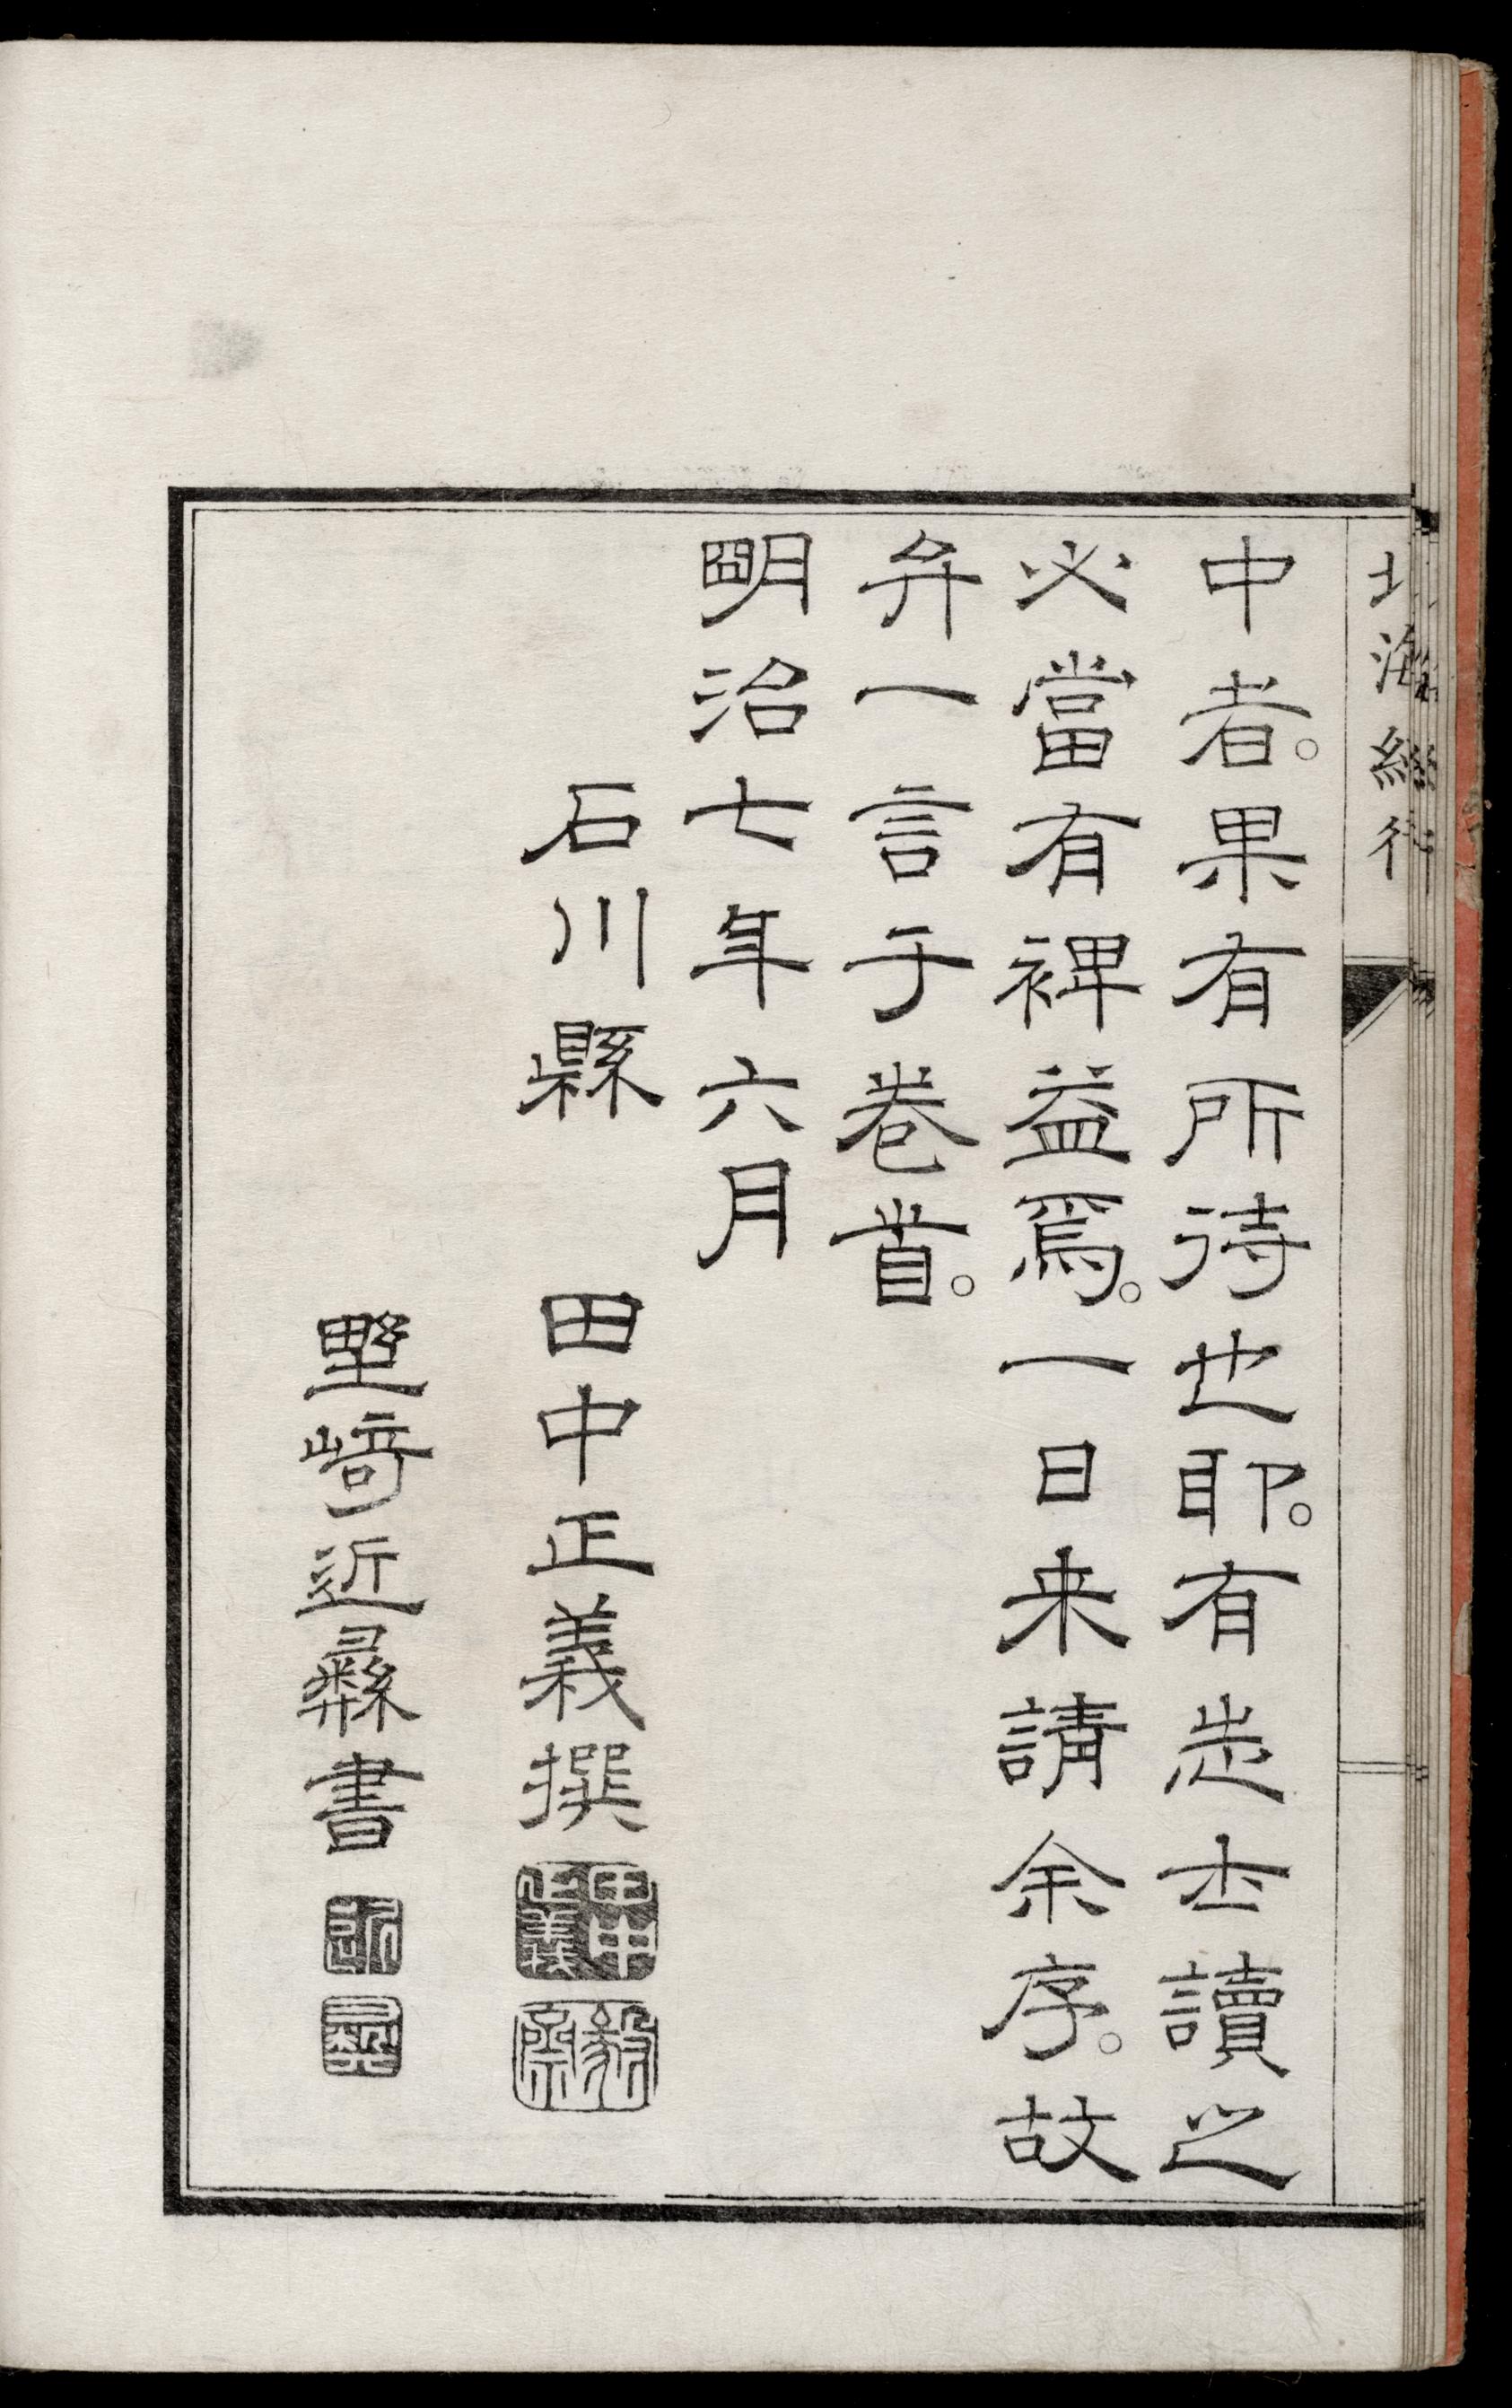 北海紀行
中者。果有所待也耶。有志士讀之
必當有裨益焉。一日来請余序。故
弁一言于卷首。
明治七年六月
石川縣　田中正義撰
田中正義
野﨑近彝書
近
彝